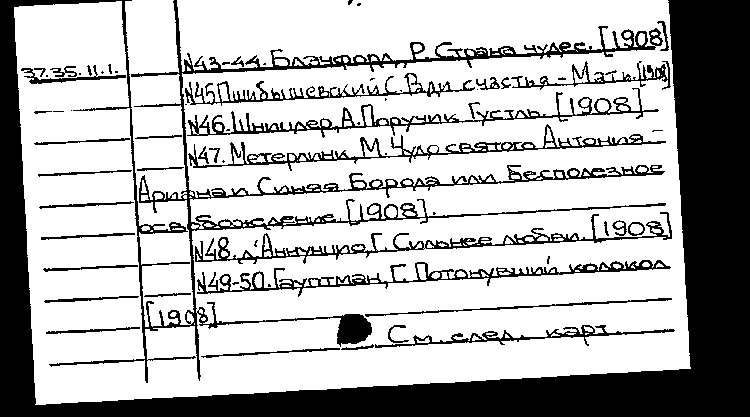 N43-44. Блэчфорд, Р. Страна чудес. [1908]
37.35.11.1.
N45 Пшибышевский, С. Ради счастья - Мать. [1908]
N46. Шницлер, А. Поручик Густль. [1908]
N47. Метерлинк, М. Чудо святого Антония. -
Ариана и Синяя Борода или Бесполезное
освобождение. [1908].
N48. д'Аннунцио, Г. Сильнее любви. [1908]
N49-50. Гауптман, Г. Потонувший колокол
[1908].
См. след. карт.